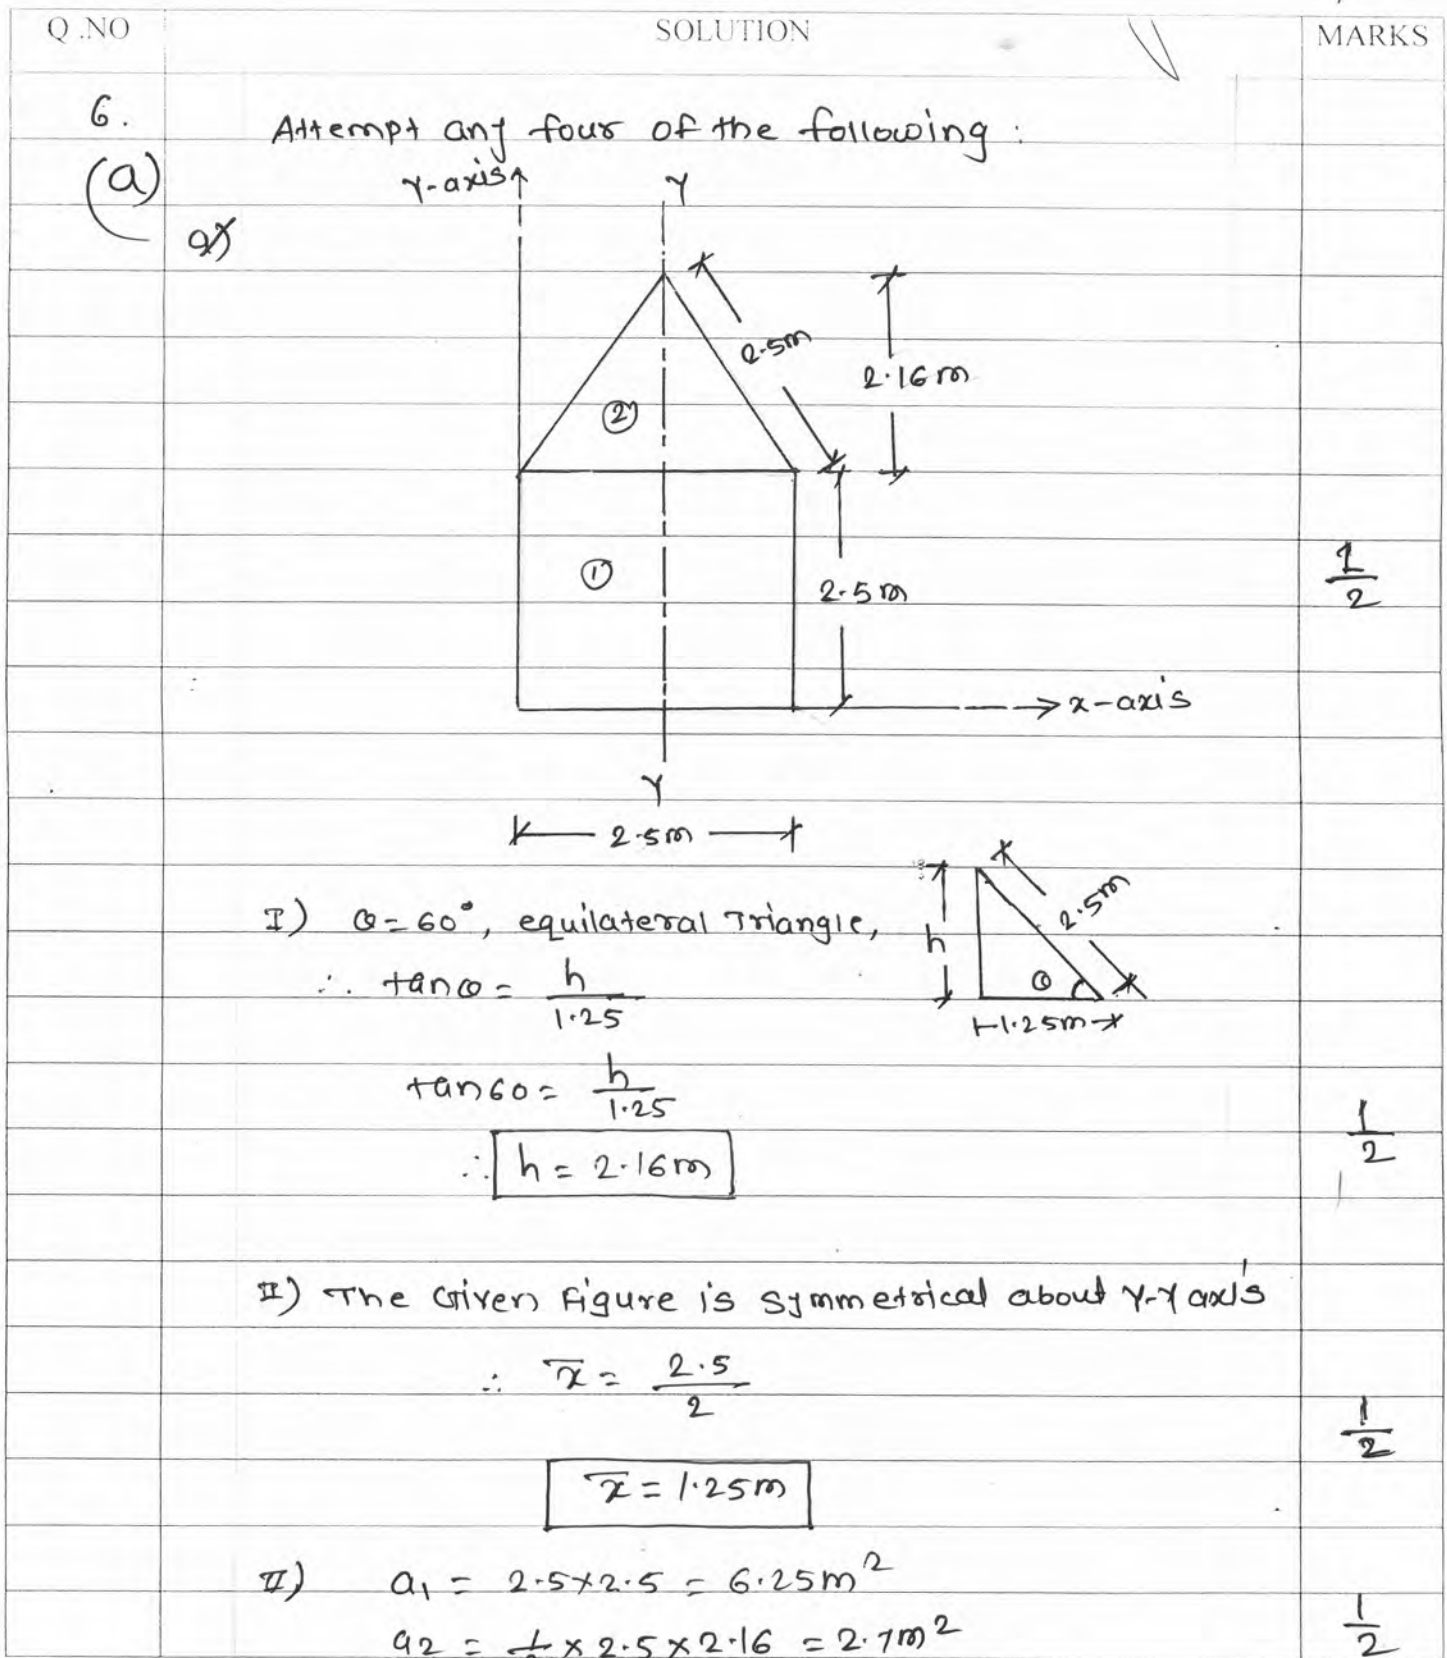 Q.NO SOLUTION MARKS
6. Attempt any four of the following :
(a)
a)
Y-axis Y
2.5m
2.16m
②
①
2.5m
1/2
x-axis
Y
2.5m
I) θ=60°, equilateral Triangle,
h 2.5m
θ
1.25m
∴ tanθ = h/1.25
tan60 = h/1.25
1/2
∴ h = 2.16m
II) The Given Figure is symmetrical about Y-Y axis
∴ x̄ = 2.5/2
1/2
x̄ = 1.25m
II) a1 = 2.5×2.5 = 6.25m²
a2 = 1/2 × 2.5 × 2.16 = 2.7m²
1/2